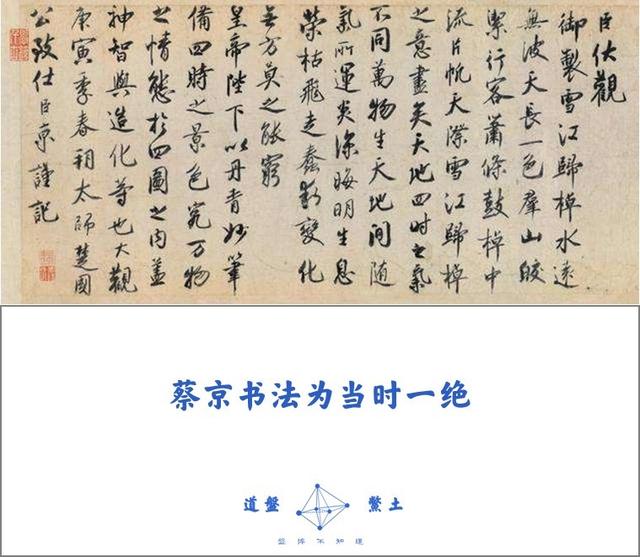 臣伏觀
御製雪江歸棹水遠
無波天長一色羣山皎
潔行客蕭條鼓棹中
流片帆天際雪江歸棹
之意盡矣天地四時之氣
不同萬物生天地間隨
氣所運炎涼晦明生息
榮枯飛走蠢動變化
無方莫之能窮
皇帝陛下以丹青妙筆
備四時之景色究万物
之情態於四圖之內蓋
神智與造化等也大觀
庚寅季春朔太師楚國
公致仕臣京謹記
蔡京书法为当时一绝
道盤 鱉土
不知道